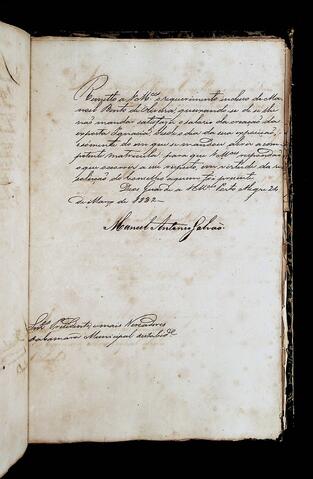 Remetto a VMces o requerimento incluso de Ma-
noel Bento da Rocha, queixando-se de se lhe
não mandar satisfazer o salario da creação da
exposta Ignacia desde o dia da sua exposição,
e somente do em que se mandou abrir a com-
petente matricula, para que VMces informando
o que occorrer a seu respeito, em virtude da re-
solução do Conselho a quem foi presente.
Deos Guarde a VMces Porto Alegre 24
de Março de 1832.
Manoel Antonio Galvão.
Snrs. Presidente, e mais Vereadores
da Camara Municipal desta Cide.